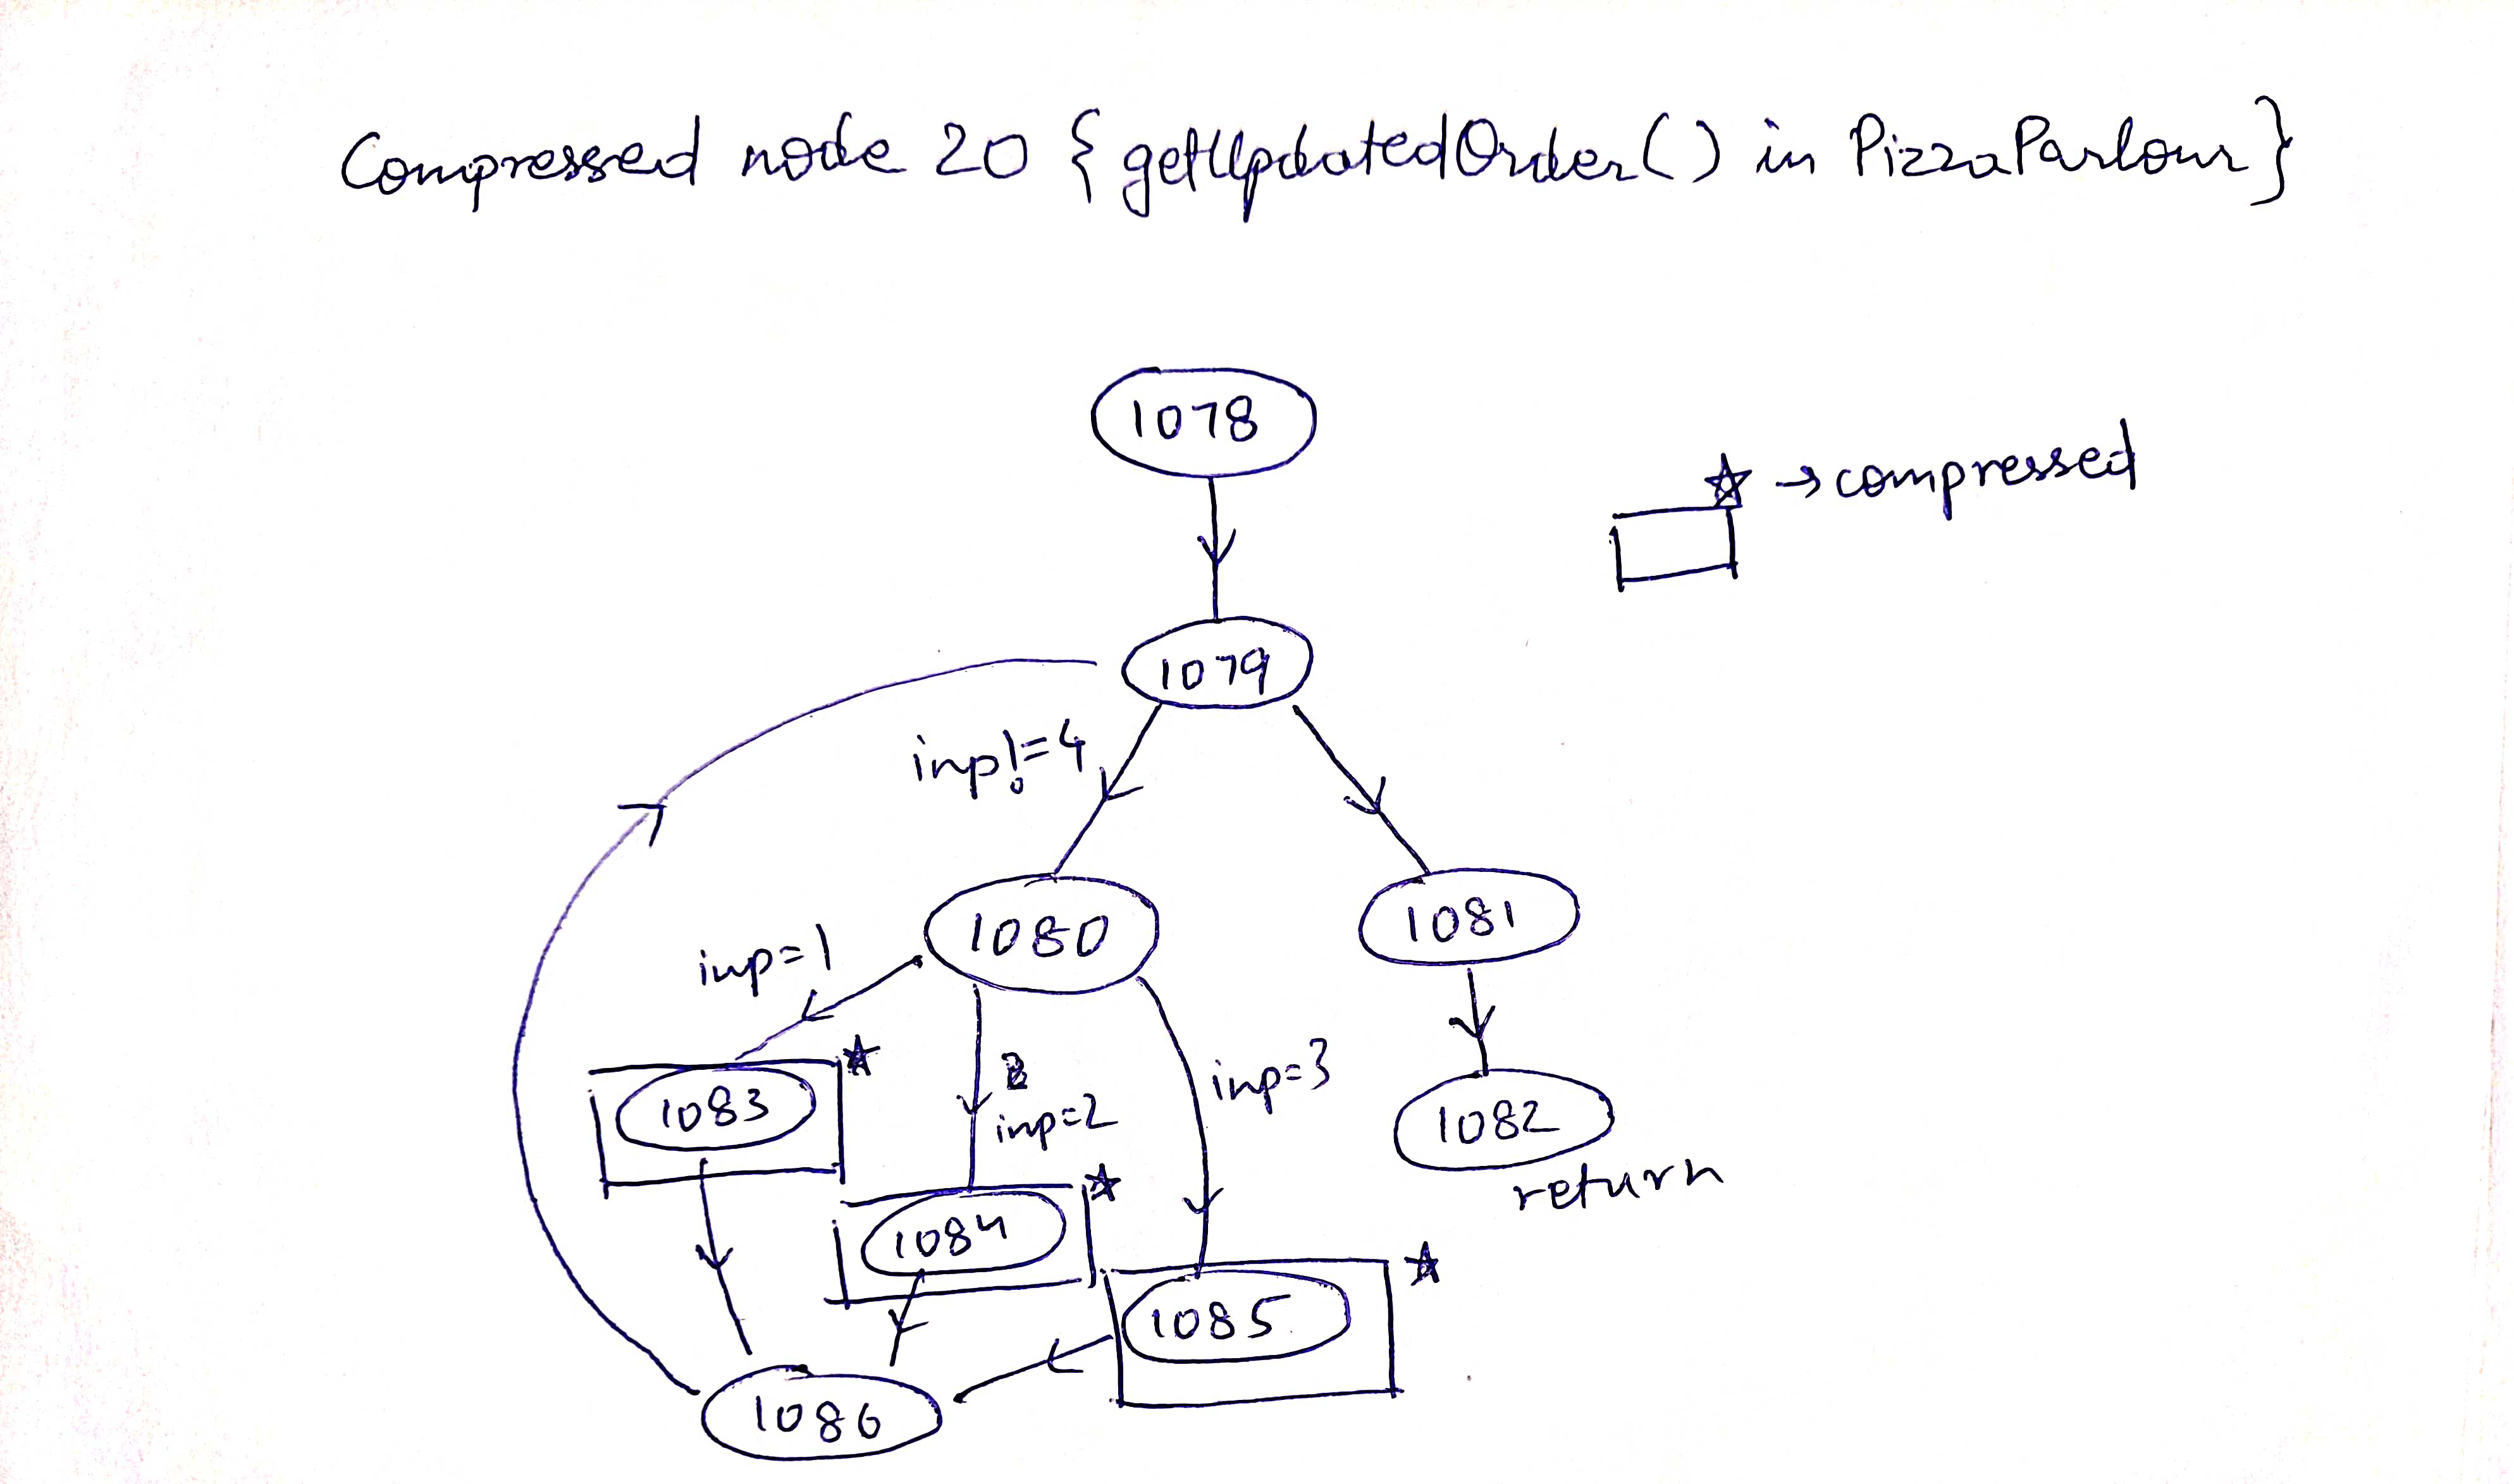 Compressed node 20 {getUpdatedOrder() in PizzaParlour}
1078
→ compressed
1079
inp!=4
1080
1081
inp=1
inp=2
inp=3
1083
1084
1085
1082
return
1086